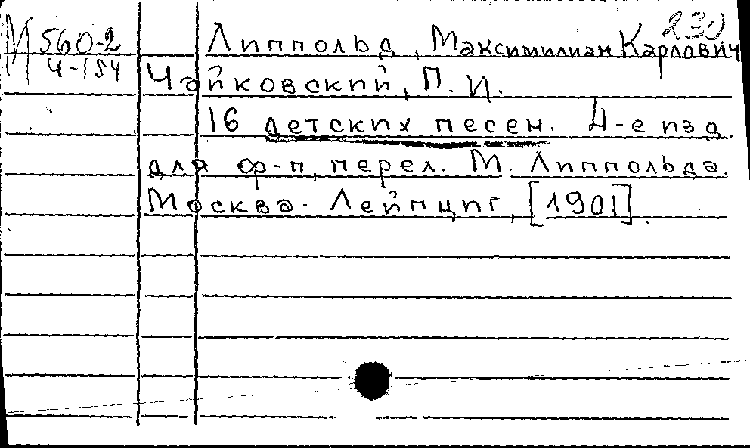 230
М 560-2
Ч-184
Липпольд, Максимилиан Карлович
Чайковский, П. И.
16 детских песен. 4-е изд.
для ф-п. перел. М. Липпольда.
Москва - Лейпциг, [1901].